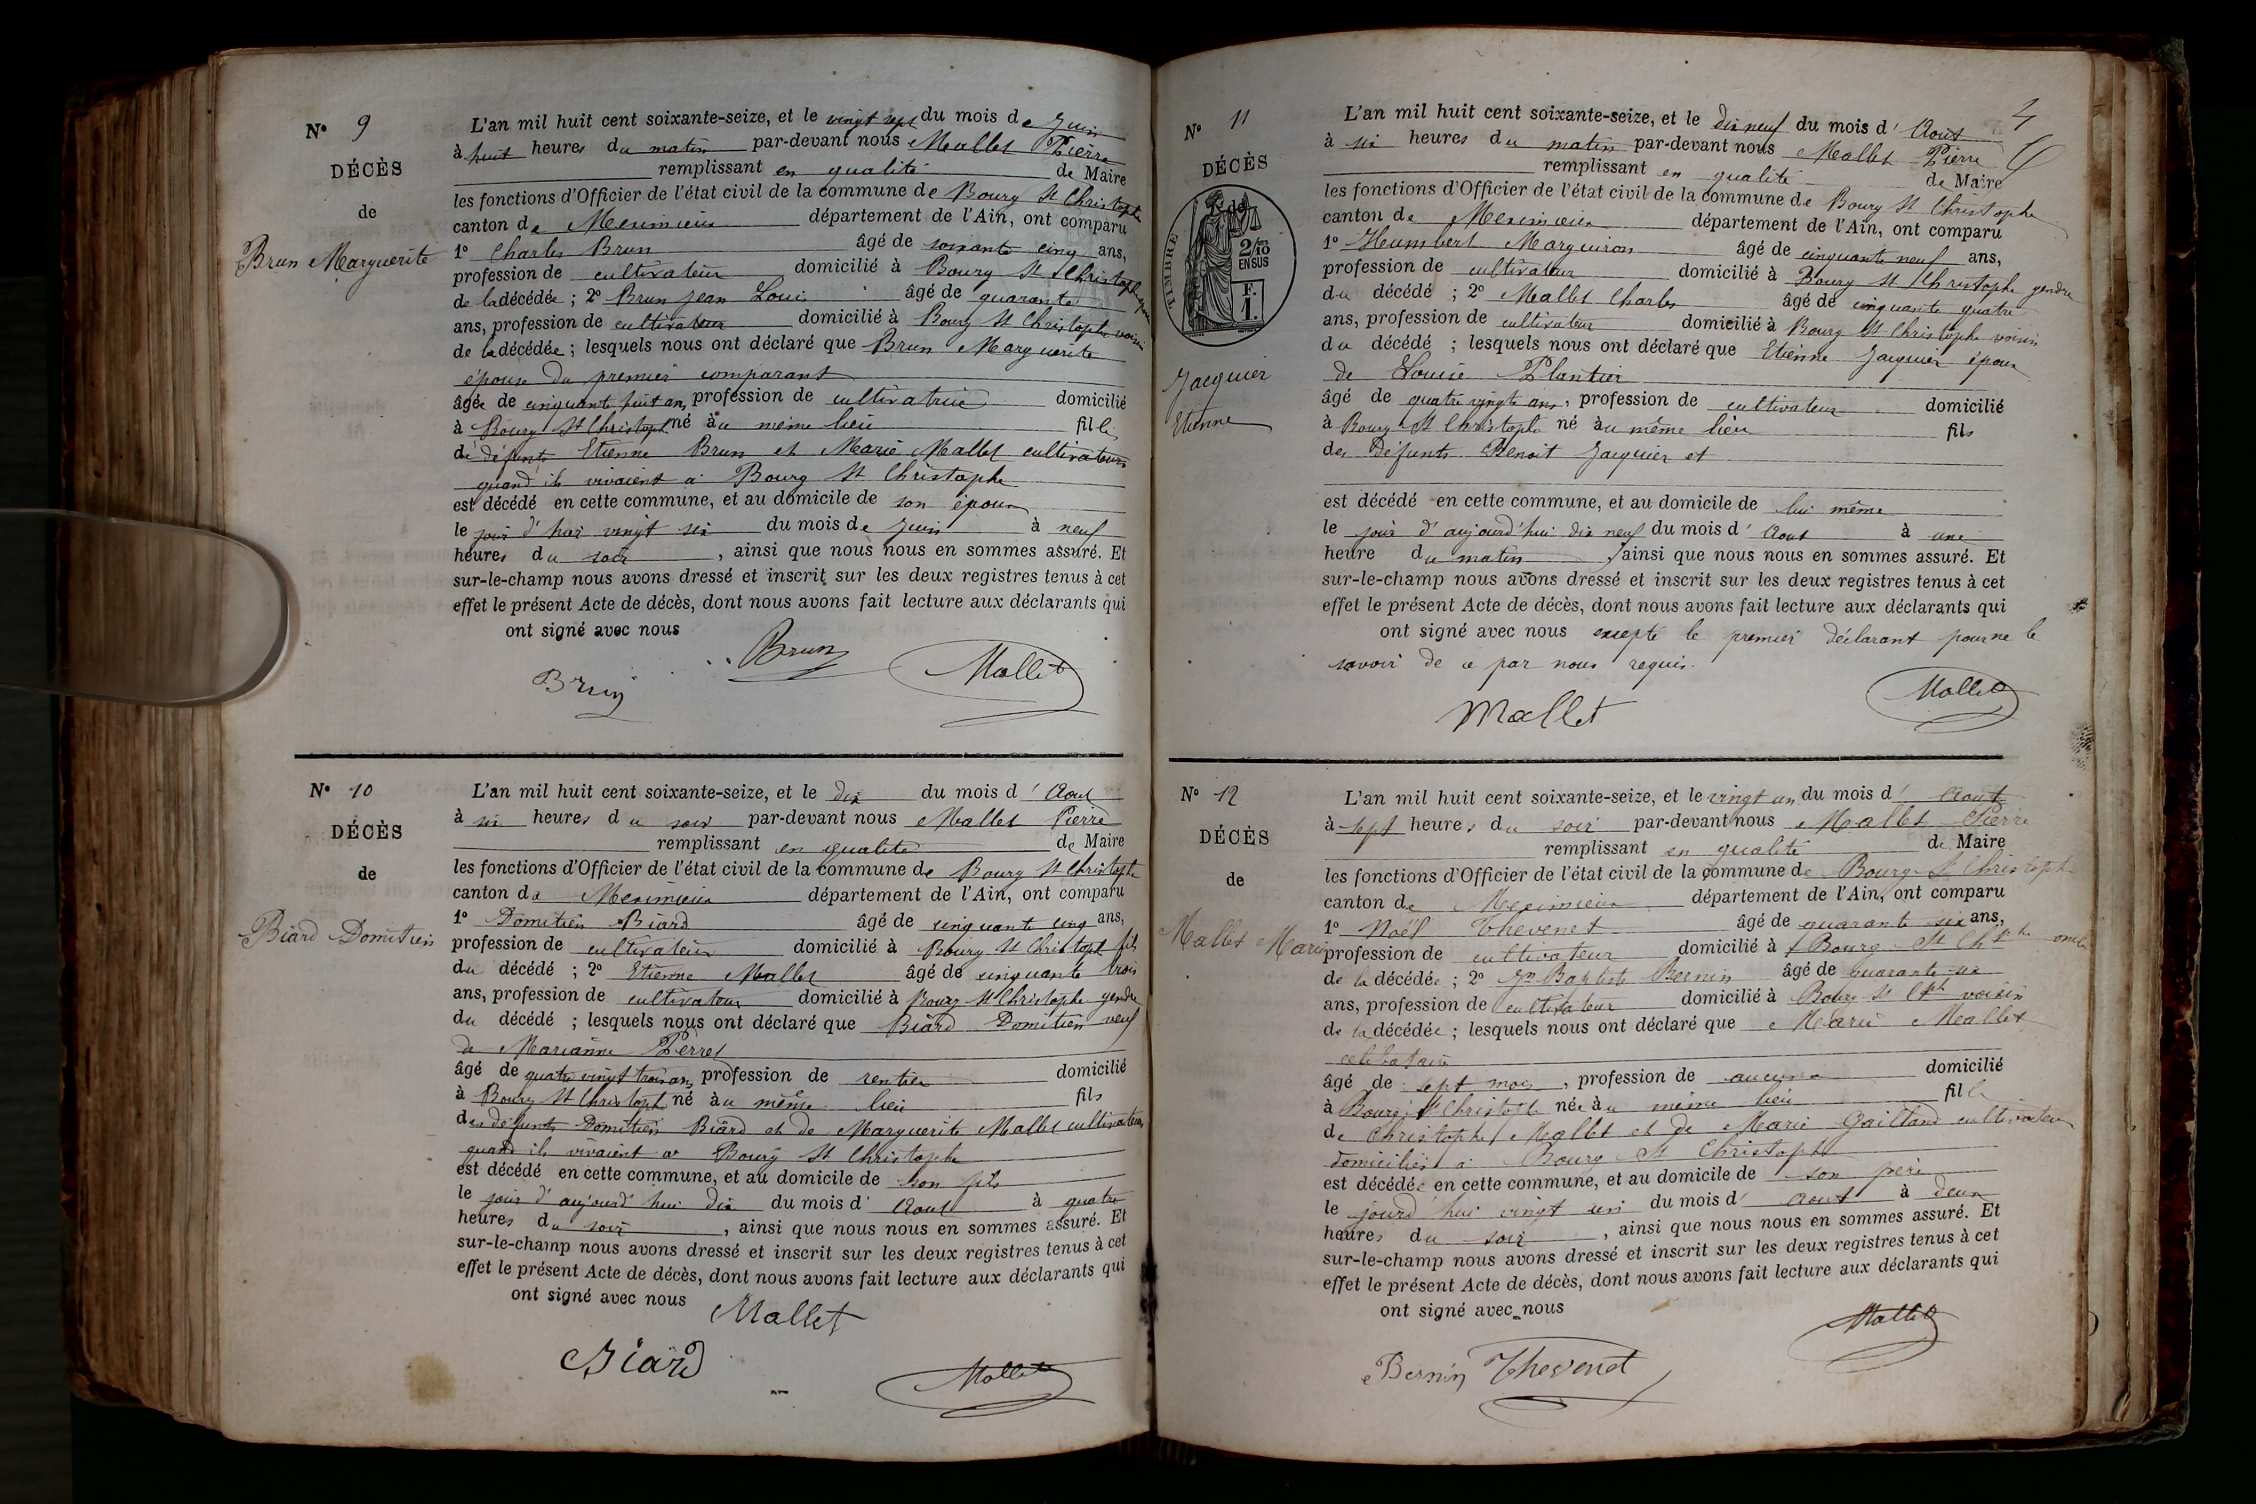 N° 9
DÉCÈS
de
Brun Marguerite
L'an mil huit cent soixante-seize, et le vingt sept du mois de Juin
à huit heures du matin par-devant nous Mallet Pierre
remplissant en qualité de Maire
les fonctions d'Officier de l'état civil de la commune de Bourg St Christophe
canton de Meximieux département de l'Ain, ont comparu
1° Charles Brun âgé de soixante cinq ans,
profession de cultivateur domicilié à Bourg St Christophe époux
de la décédée ; 2° Brun Jean Louis âgé de quarante
ans, profession de cultivateur domicilié à Bourg St Christophe voisin
de la décédée ; lesquels nous ont déclaré que Brun Marguerite
épouse du premier comparant
âgée de cinquante huit ans, profession de cultivatrice domicilié
à Bourg St Christophe né au même lieu fille
de défunts Etienne Brun et Marie Mallet cultivateurs
quand ils vivaient à Bourg St Christophe
est décédé en cette commune, et au domicile de son époux
le jour d'hier vingt six du mois de Juin à neuf
heures du soir, ainsi que nous nous en sommes assuré. Et
sur-le-champ nous avons dressé et inscrit sur les deux registres tenus à cet
effet le présent Acte de décès, dont nous avons fait lecture aux déclarants qui
ont signé avec nous
Brun
Brun
Mallet
N° 10
DÉCÈS
de
Biård Domitien
L'an mil huit cent soixante-seize, et le dix du mois d'Aout
à six heures du soir par-devant nous Mallet Pierre
remplissant en qualité de Maire
les fonctions d'Officier de l'état civil de la commune de Bourg St Christophe
canton de Meximieux département de l'Ain, ont comparu
1° Domitien Biård âgé de cinquante cinq ans,
profession de cultivateur domicilié à Bourg St Christophe fils
du décédé ; 2° Etienne Mallet âgé de cinquante trois
ans, profession de cultivateur domicilié à Bourg St Christophe gendre
du décédé ; lesquels nous ont déclaré que Biård Domitien veuf
de Marianne Perret
âgé de quatre vingt trois ans, profession de rentier domicilié
à Bourg St Christophe né au même lieu fils
des défunts Domitien Biård et de Marguerite Mallet cultivateurs
quand ils vivaient à Bourg St Christophe
est décédé en cette commune, et au domicile de son fils
le jour d'aujourd'hui dix du mois d'Aout à quatre
heures du soir, ainsi que nous nous en sommes assuré. Et
sur-le-champ nous avons dressé et inscrit sur les deux registres tenus à cet
effet le présent Acte de décès, dont nous avons fait lecture aux déclarants qui
ont signé avec nous
Mallet
Biård
Mallet
4
N° 11
DÉCÈS
de
TIMBRE
2/10
EN SUS
F.
1.
Jacquier
Etienne
L'an mil huit cent soixante-seize, et le dix neuf du mois d'Aout
à six heures du matin par-devant nous Mallet Pierre
remplissant en qualité de Maire
les fonctions d'Officier de l'état civil de la commune de Bourg St Christophe
canton de Meximieux département de l'Ain, ont comparu
1° Humbert Marguiron âgé de cinquante neuf ans,
profession de cultivateur domicilié à Bourg St Christophe gendre
du décédé ; 2° Mallet Charles âgé de cinquante quatre
ans, profession de cultivateur domicilié à Bourg St Christophe voisin
du décédé ; lesquels nous ont déclaré que Etienne Jacquier époux
de Louise Plantier
âgé de quatre vingts ans, profession de cultivateur domicilié
à Bourg St Christophe né au même lieu fils
des défunts Benoit Jacquier et
est décédé en cette commune, et au domicile de lui même
le jour d'aujourd'hui dix neuf du mois d'Aout à une
heure du matin, ainsi que nous nous en sommes assuré. Et
sur-le-champ nous avons dressé et inscrit sur les deux registres tenus à cet
effet le présent Acte de décès, dont nous avons fait lecture aux déclarants qui
ont signé avec nous excepté le premier déclarant pour ne le
savoir de ce par nous requis.
Mallet
Mallet
N° 12
DÉCÈS
de
Mallet Marie
L'an mil huit cent soixante-seize, et le vingt un du mois d'Aout
à sept heures du soir par-devant nous Mallet Pierre
remplissant en qualité de Maire
les fonctions d'Officier de l'état civil de la commune de Bourg St Christophe
canton de Meximieux département de l'Ain, ont comparu
1° Noël Thevenet âgé de quarante six ans,
profession de cultivateur domicilié à Bourg St Chphe oncle
de la décédée ; 2° Jn Baptiste Bernin âgé de quarante six
ans, profession de cultivateur domicilié à Bourg St Cph voisin
de la décédée ; lesquels nous ont déclaré que Marie Mallet
célibataire
âgé de sept mois, profession de aucune domicilié
à Bourg St Christophe née au même lieu fille
de Christophe Mallet et de Marie Gailland cultivateurs
domiciliés à Bourg St Christophe
est décédée en cette commune, et au domicile de son père
le jourd'hui vingt un du mois d'Aout à deux
heures du soir, ainsi que nous nous en sommes assuré. Et
sur-le-champ nous avons dressé et inscrit sur les deux registres tenus à cet
effet le présent Acte de décès, dont nous avons fait lecture aux déclarants qui
ont signé avec nous
Mallet
Bernin Thevenet